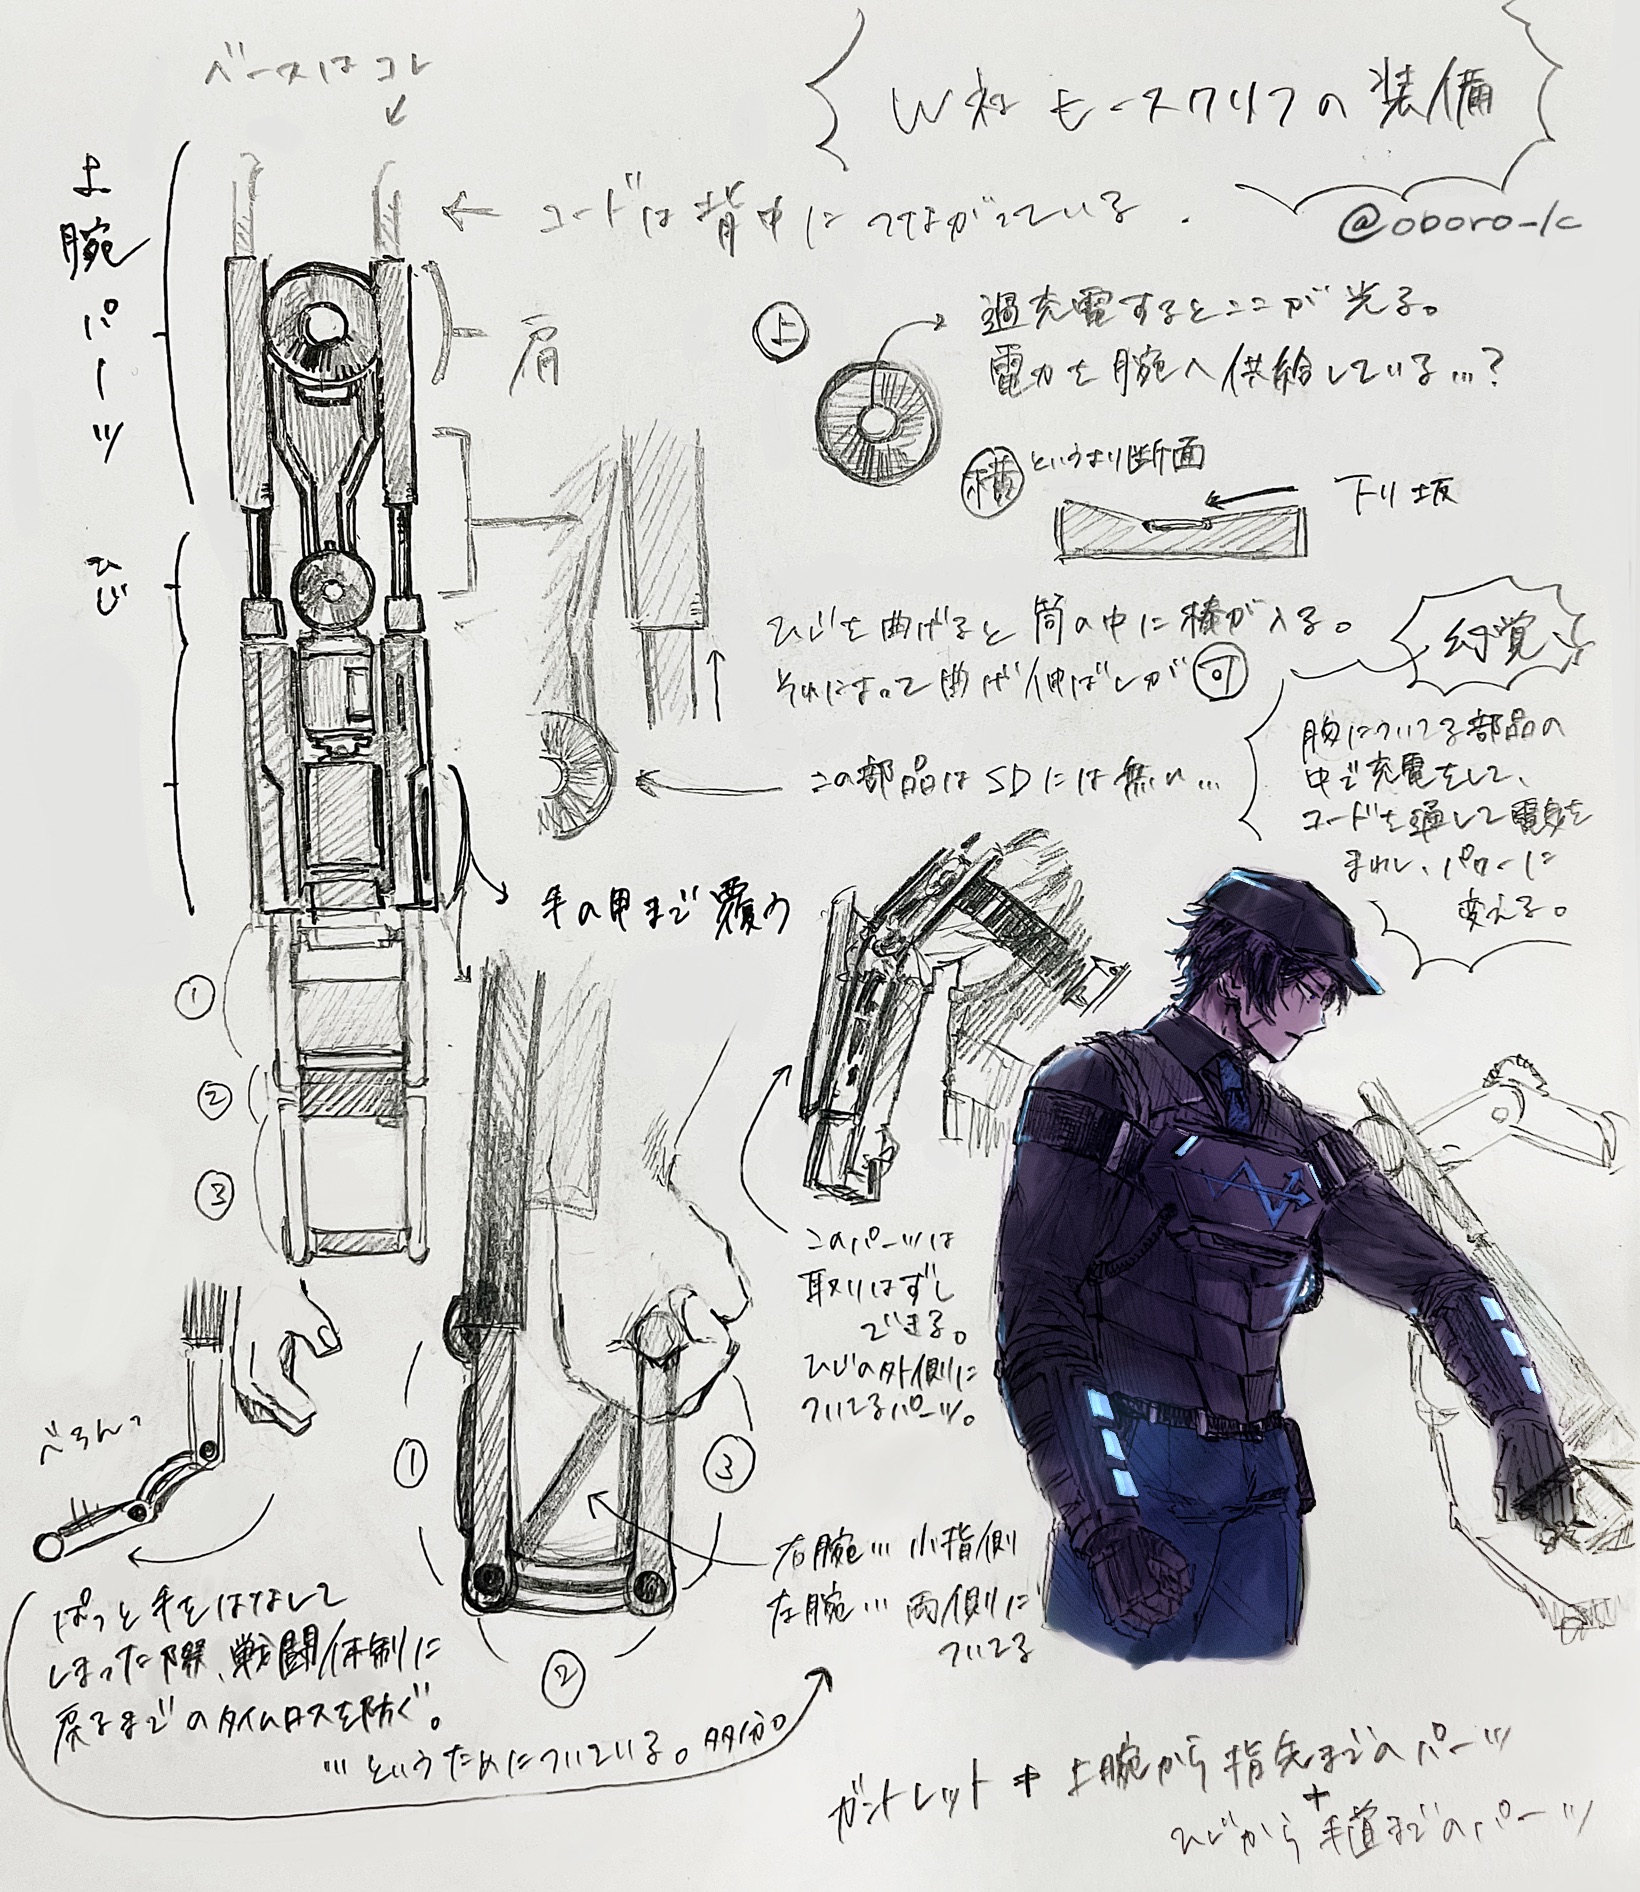 W社 ヒースクリフの装備
@oboro_lc
ベースはコレ
上腕パーツ
コードは背中につながっている
肩
上
過充電するとここが光る。
電力を腕へ供給している…?
横
というより断面
下り坂
ひじ
ひじを曲げると筒の中に棒が入る。
それによって曲げ伸ばしが可
幻覚
この部品はSDには無い…
腹についてる部品の
中で充電をして、
コードを通して電気を
まわし、パワーに
変える。
手の甲まで覆う
①
②
③
このパーツは
取りはずし
できる。
ひじの外側に
ついてるパーツ。
べろんっ
①
③
②
右腕…小指側
左腕…両側に
ついてる
ぱっと手をはなして
しまった際、戦闘体制に
戻るまでのタイムロスを防ぐ。
…というためについている。多分。
ガントレット+上腕から指先までのパーツ
+
ひじから手首までのパーツ